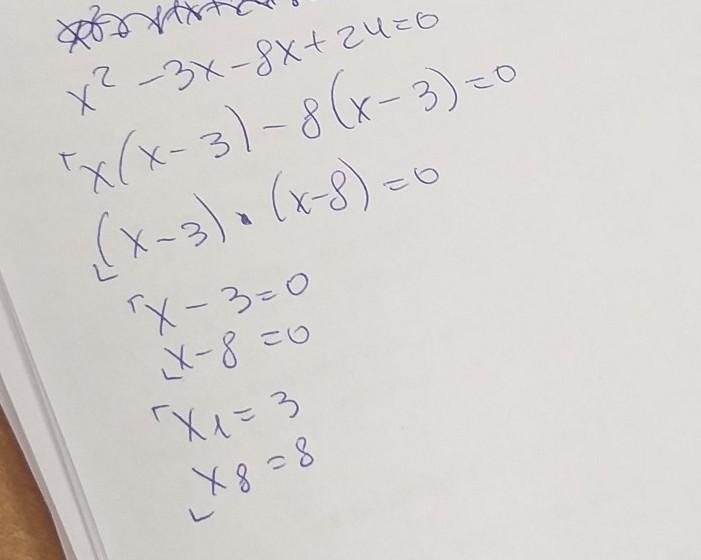 x² - 3x - 8x + 24 = 0
x(x - 3) - 8(x - 3) = 0
(x - 3) · (x - 8) = 0
x - 3 = 0
x - 8 = 0
x1 = 3
x8 = 8